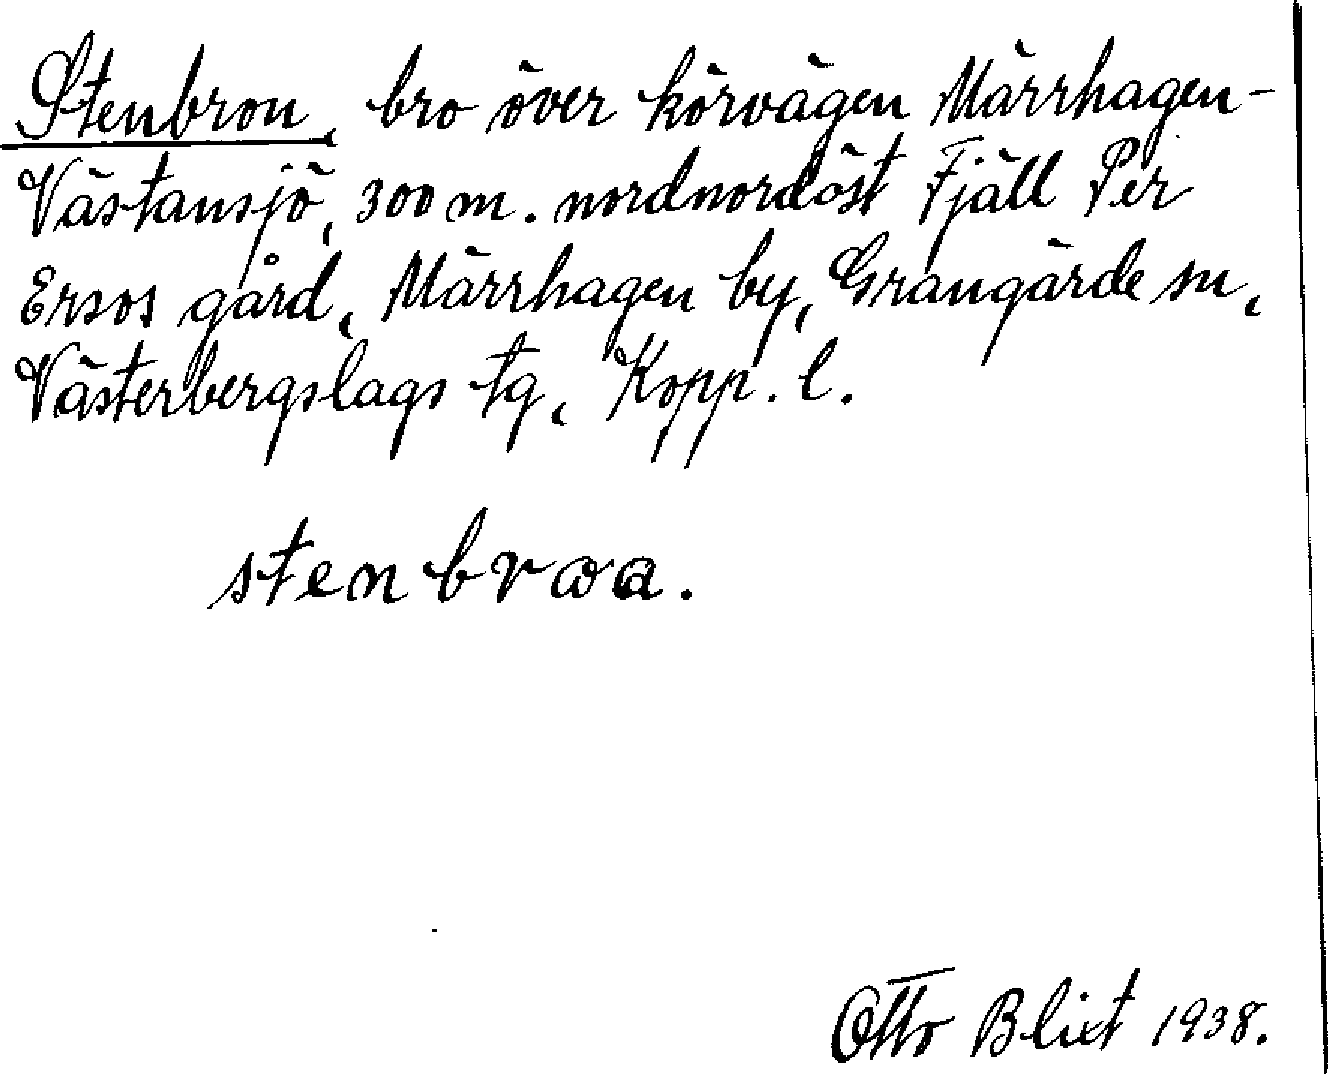 Stenbron, bro över körvägen Märrhagen-
Västansjö, 300 m. nordnordöst Fjäll Per
Ersos gård, Märrhagen by, Grangärde sn,
Västerbergslags tg, Kopp. l.
stenbroa.
Otto Blixt 1938.